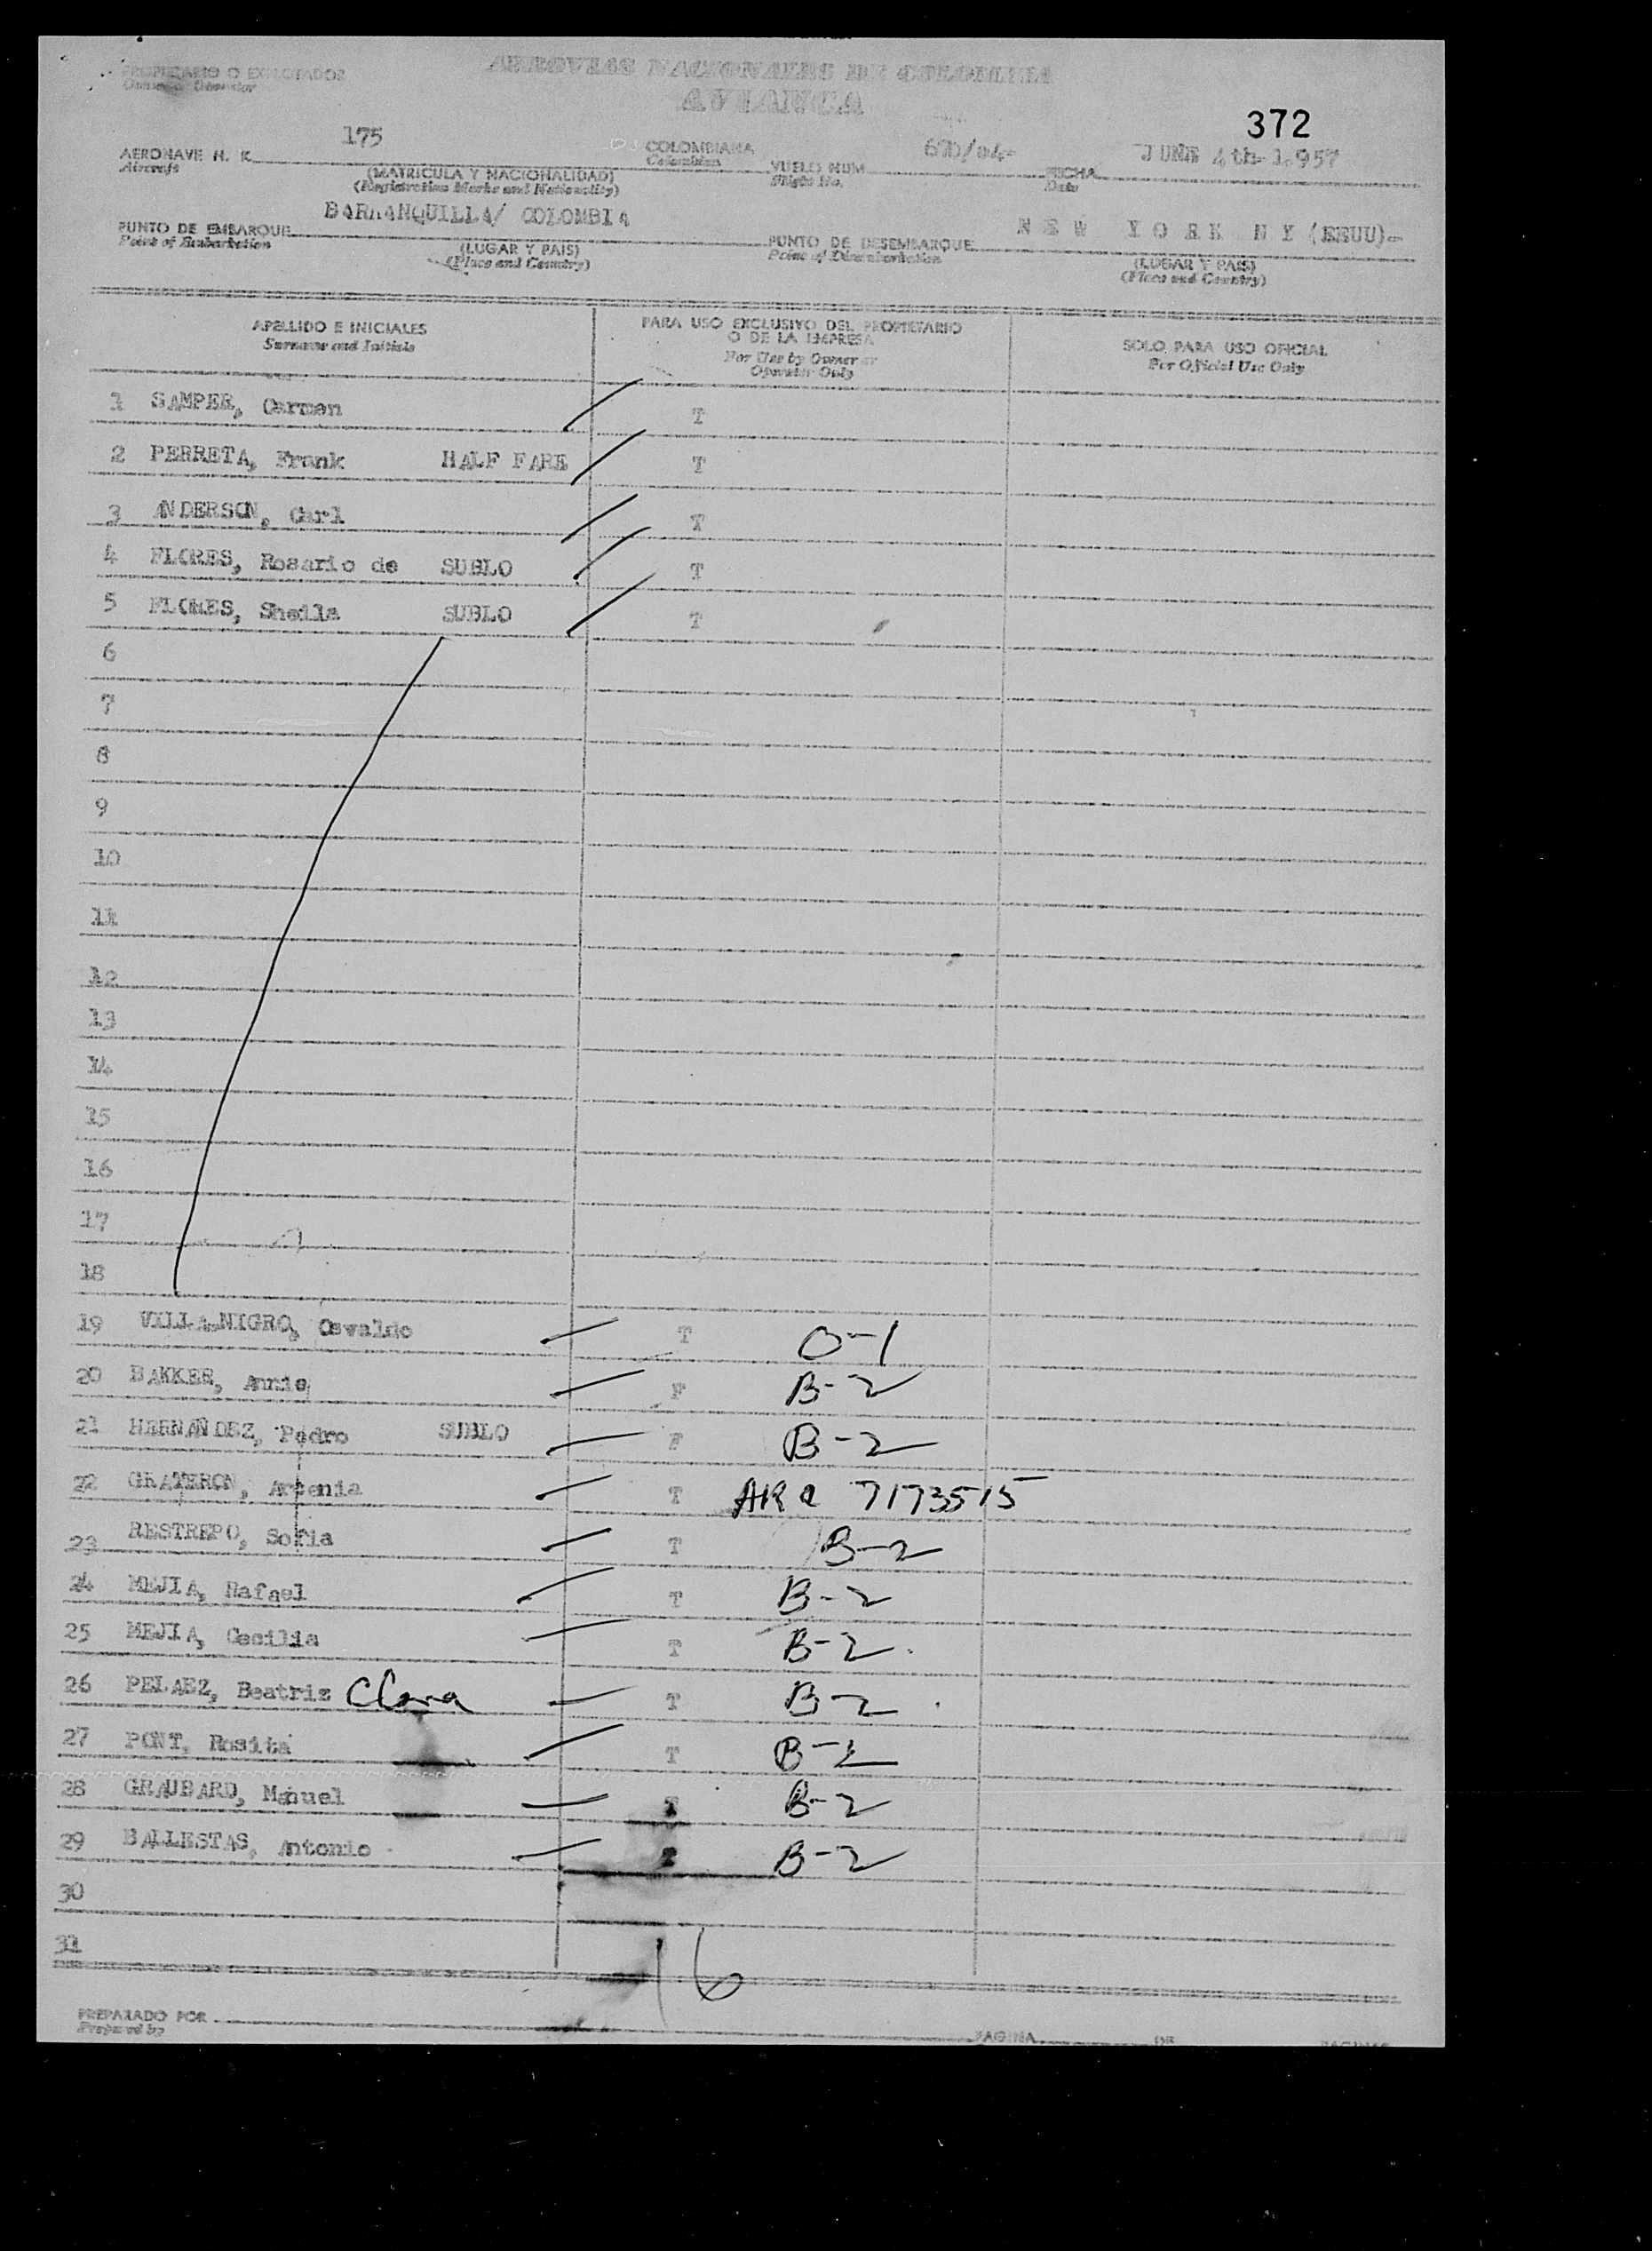 PROPIETARIO O EXPLOTADOR
Owner or Operator
AEROVIAS NACIONALES DE COLOMBIA
AVIANCA
372
AERONAVE H. K. 175 COLOMBIANA VUELO NUM. FECHA JUNE 4th- 1.957
Aircraft (MATRICULA Y NACIONALIDAD) Colombian Flight No. Date
(Registration Marks and Nationality)
PUNTO DE EMBARQUE BARRANQUILLA/ COLOMBIA PUNTO DE DESEMBARQUE NEW YORK NY (EEUU)-
Point of Embarkation (LUGAR Y PAIS) Point of Disembarkation (LUGAR Y PAIS)
(Place and Country) (Place and Country)
APELLIDO E INICIALES PARA USO EXCLUSIVO DEL PROPIETARIO O DE LA EMPRESA SOLO PARA USO OFICIAL
Surname and Initials For Use by Owner or Operator Only For Official Use Only
1 SAMPER, Carmen T
2 PERRETA, Frank HALF FARE T
3 ANDERSON, Carl T
4 FLORES, Rosario de SUBLO T
5 FLORES, Sheila SUBLO T
6
7
8
9
10
11
12
13
14
15
16
17
18
19 VILLANIGRO, Oswaldo T O-1
20 BAKKER, Annie F B-2
21 HERNAÑDEZ, Pedro SUBLO F B-2
22 GRATERON, Arcenia T 7173515
23 RESTREPO, Sofia T B-2
24 MEJIA, Rafael T B-2
25 MEJIA, Cecilia T B-2
26 PELAEZ, Beatriz Clara T B-2
27 PONT, Rosita T B-2
28 GRAUBARD, Manuel T B-2
29 BALLESTAS, Antonio T B-2
30
31
16
PREPARADO POR PAGINA DE PAGINAS
Prepared by